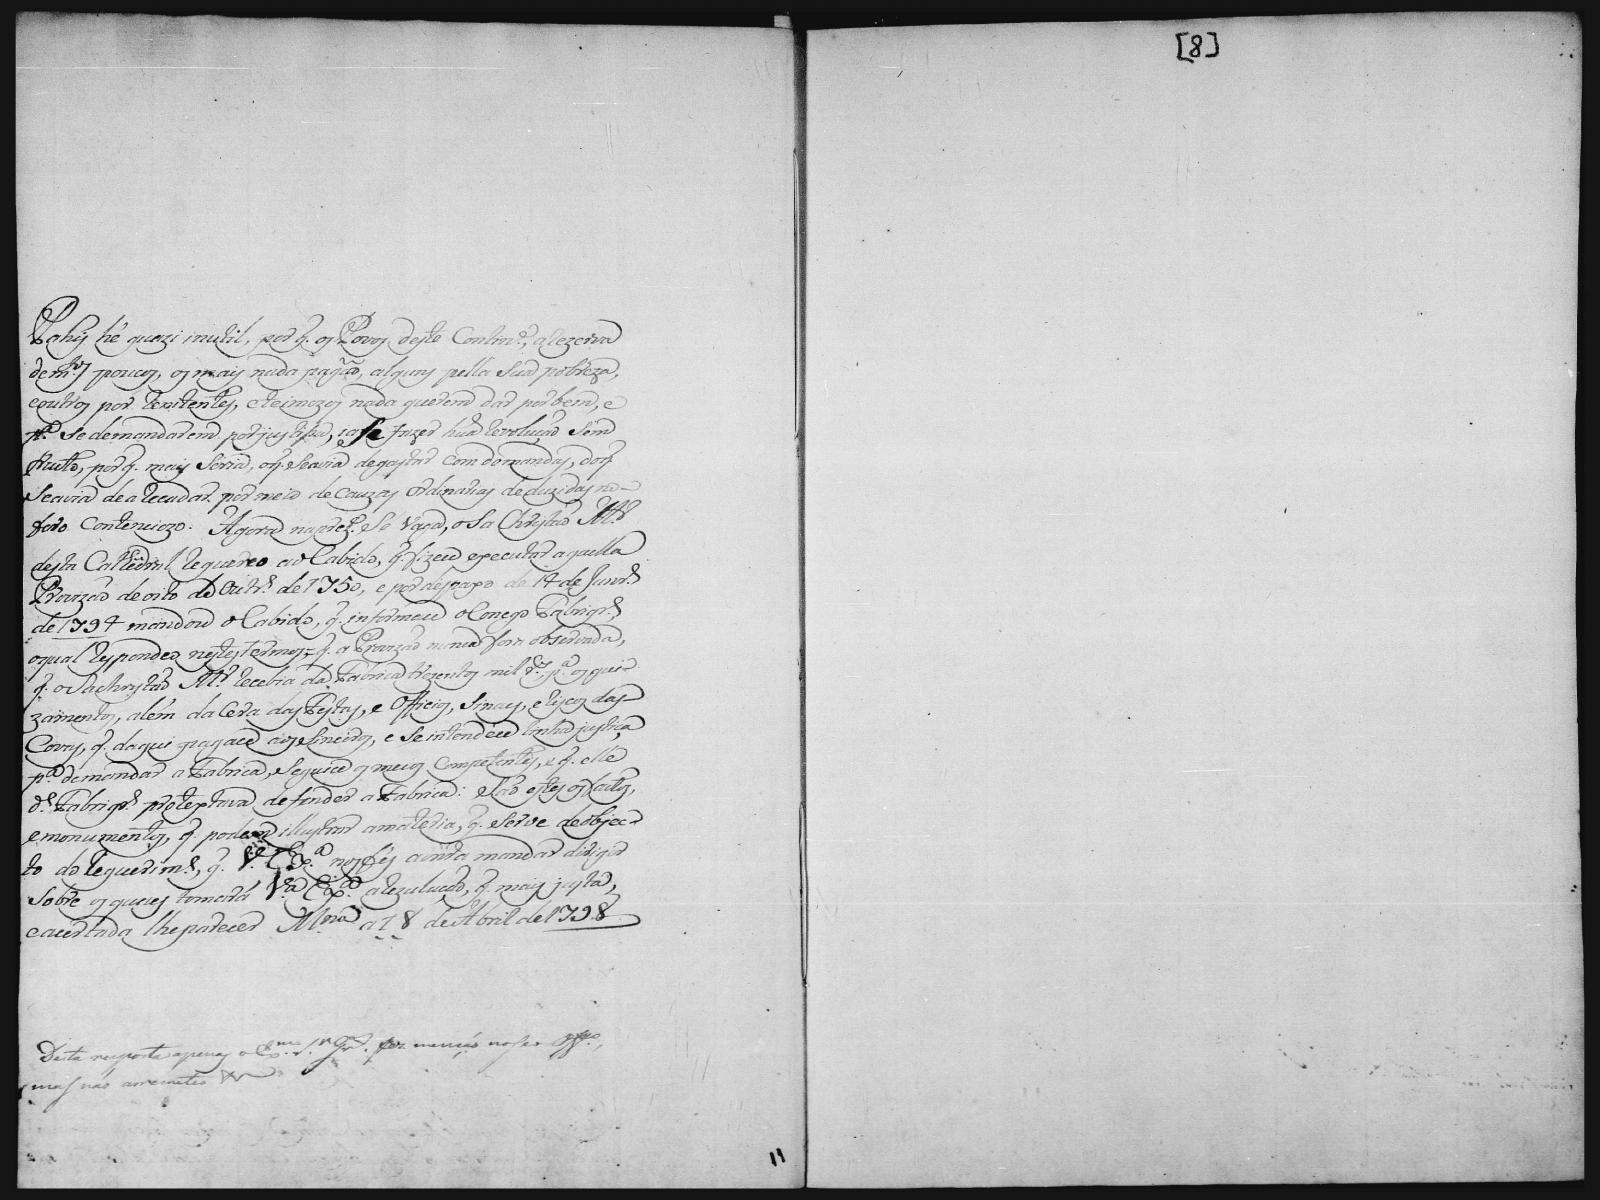 [8]
Pahij hé quazi inutil, por q. os Povos deste Contin.e, a rezerva
de m.tos poucos, os mais nada pagão, alguns pella Sua pobreza,
e outros por rexitentes, e teimozos nada querem dar por bem, e
p.a Se demandarem por justiça, era fazer hua revolução Sem
fruto, por q. mais Seria, o q. Se avia de gastar com demandas, do q.
Se avia de arecadar por meio de Cauzas Ordinarias deduzidas no
foro Contenciozo. Agora na prez.e Se Vaga, o Sa Christão M.r
desta Cathedral requereo ao Cabido, q. fizece executar aquella
Provizão de oito de Outr.o de 1750, e por despaxo de 14 de Janr.o
de 1794 mandou o Cabido, q. informace o Conego Fabriqr.o,
o qual respondeo nestes termos = q. a Provizão nunca fora observada,
q. o Sachristão M.r recebia da Fabrica trezentos mil r.s p.a os gui-
zamentos, além da Cera das Festas, e Officios, Sinaes, e riscos das
Covas, q. daqui pagace aos Sineiros, e Se intendece tinha justiça
p.a demandar a Fabrica, Seguice os meios Competentes, e q. elle
d.o Fabriqr.o protextava defender a Fabrica: e São estes os factos,
e monumentos, q. podem illustrar a materia, q. Serve de objec-
to do requerim.to, q. V.a Ex.a nos fes a honra mandar dirigir
Sobre os quaes tomará V.a Ex.a a rezulução, q. mais justa,
e acertada lhe parecer Mrna a 18 de Abril de 1798
Desta resposta apenas o Ex.mo S.r G.or fez menção no seo off.o,
mas não a remeteo
11